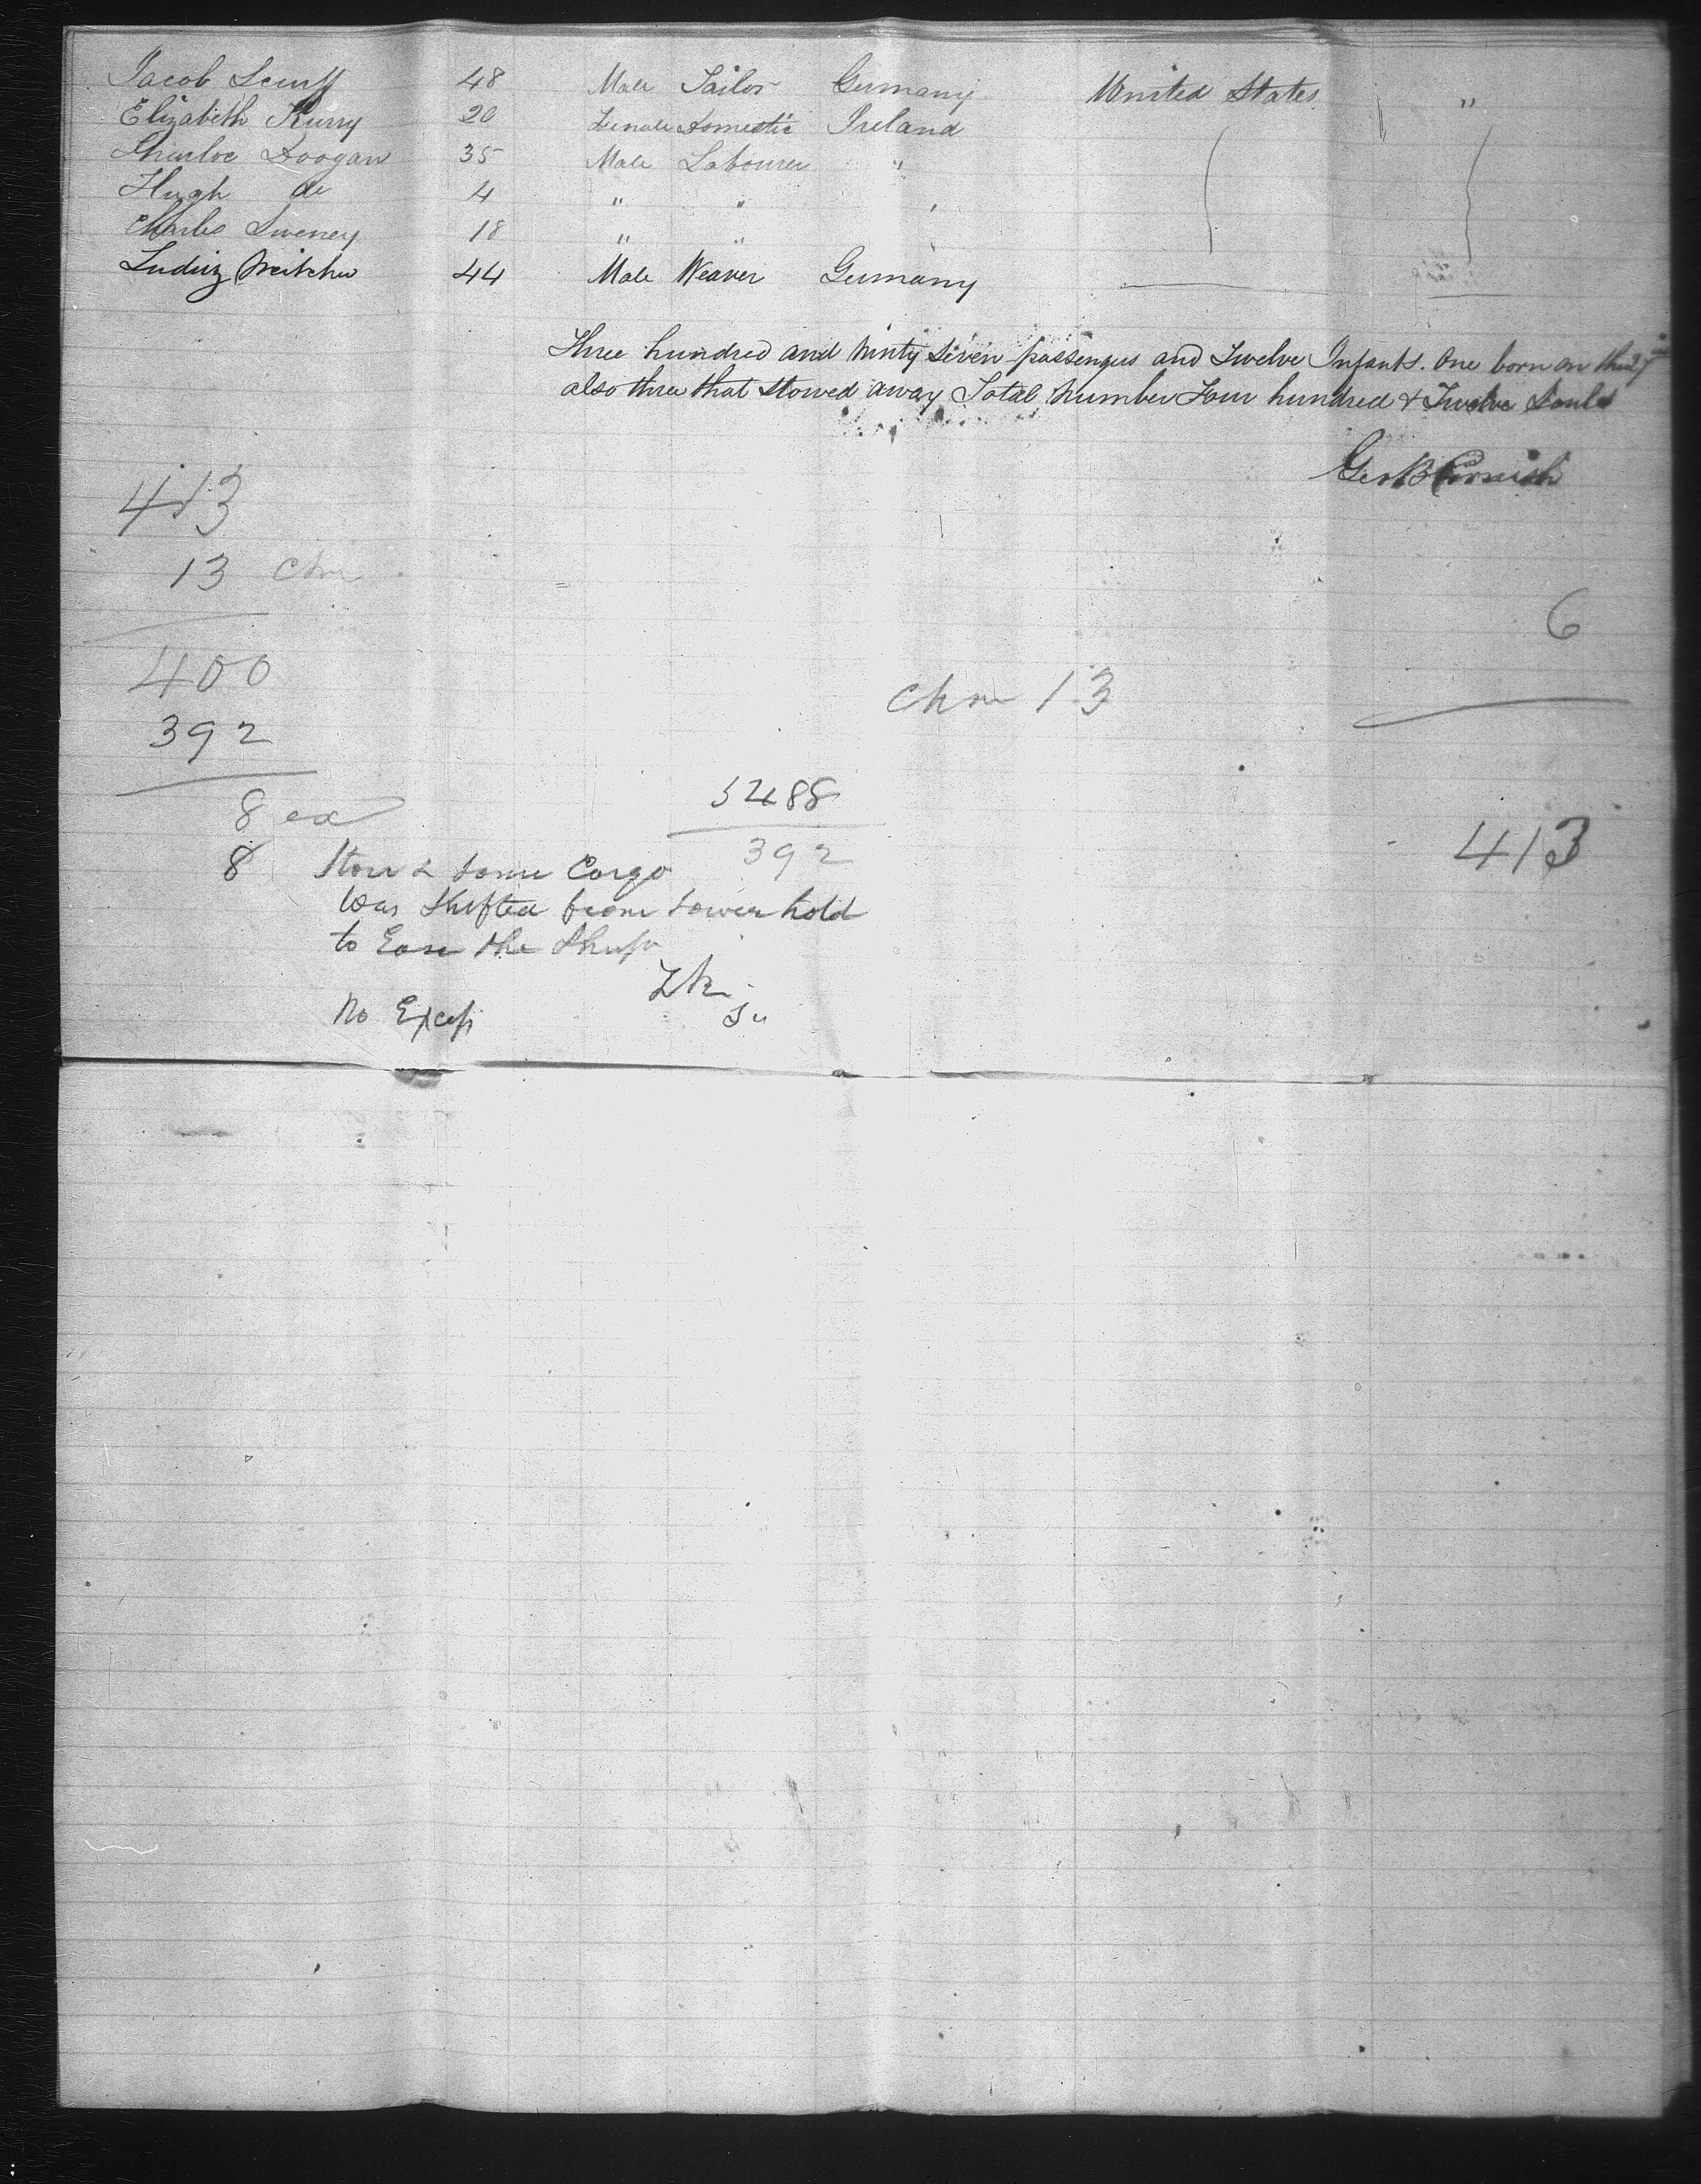 Jacob 48 Male Tailor Germany United States "
Elizabeth Kurry 20 Female Domestic Ireland
Doogan 35 Male Labourer "
Hugh do 4 " " "
Charles Sweney 18 " "
44 Male Weaver Germany
Three hundred and ninty seven passengers and Twelve Infants. One born on the 27
also three that stowed away Total number Four hundred & Twelve Souls
Geo B Cornish
413
13 chn
6
400
chn 13
392
5488
8 ex
392
413
8 Store & some Cargo
was Shifted from Lower hold
to Ease the Ship
No Excess